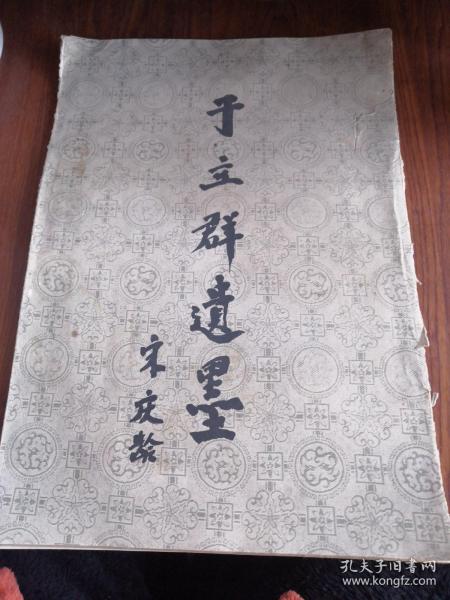 于立群遗墨
宋庆龄
孔夫子旧书网
www.kongfz.com